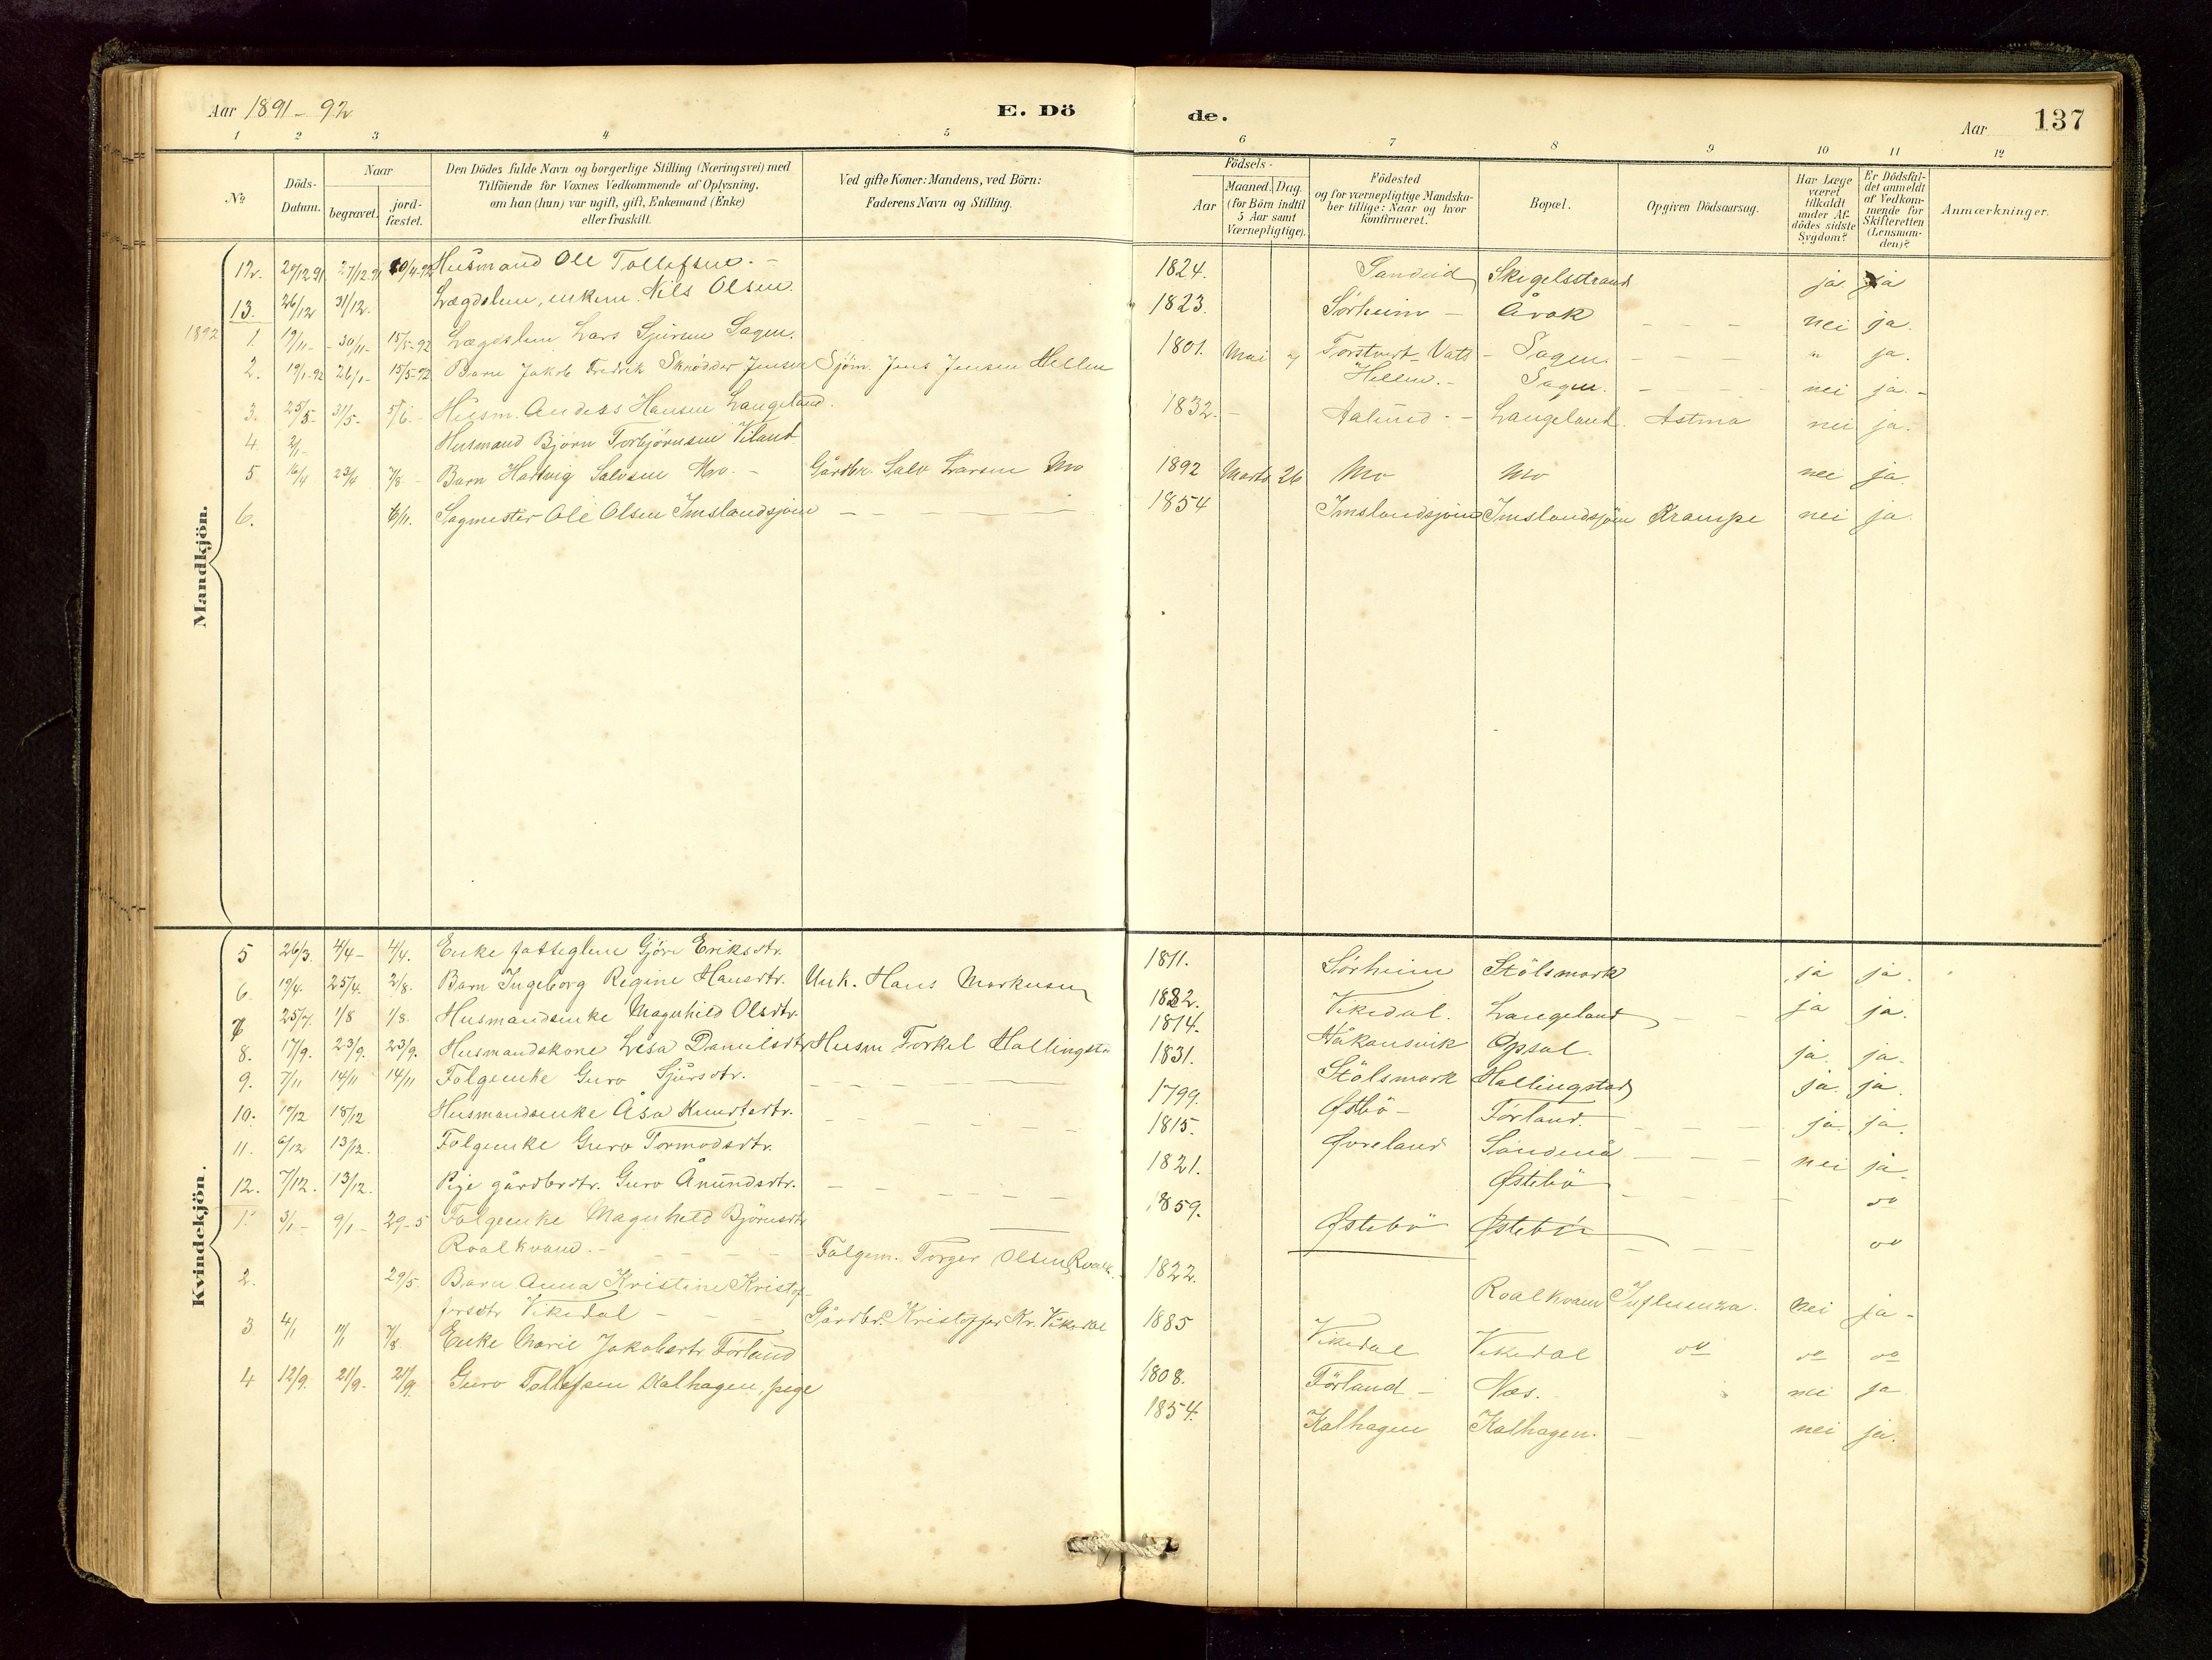 Aar 1891-92
E. Dö
de.
Aar
137
1 2 3 4 5 6 7 8 9 10 11 12
№
Döds-Datum.
Naar
begravet.
jord-fæstet.
Den Dödes fulde Navn og borgerlige Stilling (Næringsvei) med
Tilföiende for Voxnes Vedkommende af Oplysning,
om han (hun) var ugift, gift, Enkemand (Enke)
eller fraskilt.
Ved gifte Koner: Mandens, ved Börn:
Faderens Navn og Stilling.
Födsels-
Aar
Maaned. Dag.
(for Börn indtil
5 Aar samt
Værnepligtige).
Födested
og for værnepligtige Mandska-
ber tillige: Naar og hvor
konfirmeret.
Bopæl.
Opgiven Dödsaarsag.
Har Læge
været
tilkaldt
under Af-
dödes sidste
Sygdom?
Er Dödsfal-
det anmeldt
af Vedkom-
mende for
Skifteretten
(Lensman-
den)?
Anmærkninger.
Mandkjön.
12. 27/12 91 Husmand Ole Tollefsen. - 1824. Sandeid Skegelsstrand ja ja
13. 26/12 31/12. Lægdslem, enkem. Nils Olsen 1823. Sörheim - Åvak - - - nei ja.
1892
1. 30/11- 15/5-92 Lægdslem Lars Sjursen Sagen. 1801. - Sagen. - - - " ja.
2. 19/1-92 26/1- 15/5-92 Barn Jakob Fredrik Skrödder Jensen Sjöm. Jens Jensen Hellen Mai Hellen. - Sagen. - - - nei ja. -
3. 25/5- 31/5- 5/6- Husm. Anders Hansen Langeland. 1832. - Aalund - - Langeland. Astma nei ja.
4 Husmand Björn Torbjörnsen Viland
5 16/4 23/4 7/8 - Barn Hartvig Salvesen Mo. - Gårdbr. Salv Larsen Mo 1892 Marts 26 Mo Mo nei ja
6. 6/11. Sagmester Ole Olsen Imslandsjöen - - - 1854 Imslandsjöen Imslandsjöen Krampe nei ja
Kvindekjön.
5 26/3. 4/4- 4/4. Enke fattiglem Gjöri Eriksdtr. 1811. Sörheim Stölsmark ja ja.
6. 19/4. 25/4. 2/8. Barn Ingeborg Regine Hansdtr. Unk. Hans Markusen 1882. Vikedal. Langeland - - ja ja.
7 25/7. 1/8 1/8. Husmandsenke Magnhild Olsdtr. 1814. Håkonsvik Opsal. ja. ja.
8. 17/9. 23/9. 23/9. Husmandskone Lesa Danielsdtr Husm Torkel Hallingsta 1831. Stölsmark Hallingstad ja. ja.
9. 7/11 14/11 14/11 Folgeenke Guro Sjursdtr. - - - 1799. Østbö - Törland. - - - ja. ja.
10. 18/12 Husmandsenke Åsa Knutsdtr. - - - 1815. Øvreland Sandenå - - - nei ja
11. 6/12 13/12. Folgeenke Guro Tormodsdtr. 1821. Østebö - - - do
12. 7/12. 13/12. Pige gårdbrdtr. Guro Ånundsdtr. - - - 1859. Østebö Østebö - - do
1. 3/1- 9/1- 29-5 Folgeenke Magnhild Björnsdtr
Roalkvam. - - - - Folgem. Torger Olsen Roalk. 1822. Roalkvam Influenza. nei ja -
2. 29/5. Barn Anna Kristine Kristof-
fersdtr Vikedal - - Gårdbr. Kristoffer Kr. Vikedal 1885 Vikedal Vikedal do do do
3 4/1 7/8 Enke Marie Jakobsdtr Förland 1808. Förland - Næs. nei ja
4 12/9. 21/9. 21/9. Guro Tollefsen Kalhagen, pige 1854. Kalhagen Kalhagen. - nei ja.